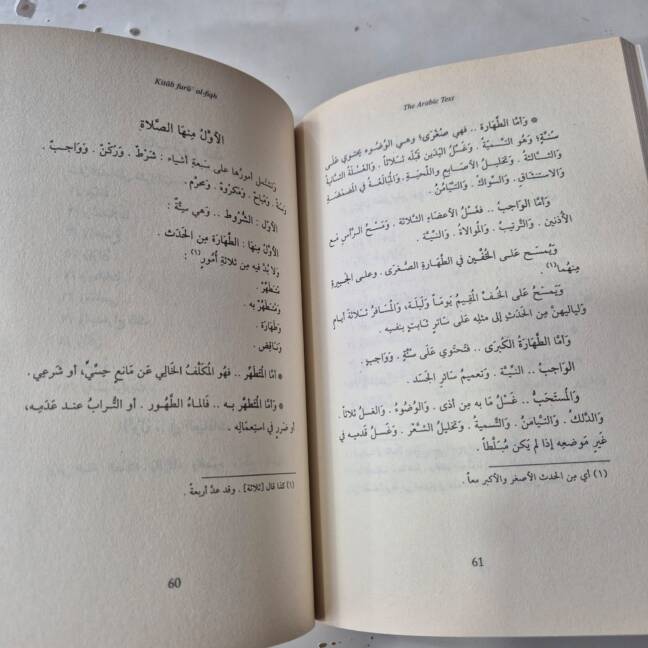 Kitāb furūʿ al-fiqh
الأَوَّلُ مِنهَا الصَّلاة
وَتَشتَمِل أمورُها على سَبعَةِ أشياء : شَرْطٌ . وَرُكنٌ . وَوَاجبٌ .
وَسنةٌ . وَمُباحٌ . وَمَكروهٌ . وَمحرم .
الأول : الشُّروط .. وَهي سِتَّةٌ :
الأوَّلُ مِنهَا : الطَّهارة مِن الحَدَث .
وَلا بُدّ فيه مِن ثَلاثةِ أُمُورٍ (١) :
مُتَطهِّرٌ .
وَمُتطهَّرٌ به .
وَطَهارَة .
وَنَاقِض .
* امَّا المتَطَهِّرُ .. فَهو المُكلَّفُ الخَالي عَن مَانِعٍ حِسِّيٍّ، أو شَرعِي .
* وَامَّا المُتَطهَّرُ بِه .. فَالماءُ الطَّهُور . أو التُّرابُ عنـد عَدَمِـه،
أو ضَررٍ في استِعمَالِه .
(١) كذا قال [ثلاثة] . وقد عدَّ أربعةً .
60
The Arabic Text
* وَامَّا الطَّهارَة .. فهي صُغْرَى؛ وهـي الوُضُوء يحتوي عَلَى
سُنَّةٍ؛ وَهُو التَّسمِيةُ . وَغَسْلُ اليَدَين قَبْلَه ثَـلاثاً . وَالغَسْلَة الثَّانيَةُ
وَالثالثـة . وَتخليـلُ الأصَابِـع وَاللِّحيَـة . وَالمُبَالَغـة في المَضمَضـة
وَالاستنشـاقِ . وَالسوَاك . وَالتَّيامُنُ .
وَامَّـا الوَاجـبُ .. فغَسْـلُ الأعضَـاء الثلاثـة . وَمَسْـحُ الـرَّأسِ مَـع
الأذنين . وَالتَّرتيبُ . وَالموَالاةُ . وَالنيَّة .
وَيُمسَـح عَلَـى الخُفَّين فِي الطَّهارَةِ الصُغرَى . وعلـى الجَبيرةِ
مِنهُما (١) .
وَيُمسَـحُ عَلَى الخُفِّ المُقِيـمُ يَوماً وَلَيلَة، وَالمُسَافرُ ثلاثةَ ايام
وَلياليهنَّ مِن الحَدَثِ إلى مِثلِه عَلَى سَاتر ثابتٍ بنفسِه .
وَامَّا الطَّهَارَةُ الكُبْرَى .. فَتحتوِي عَلَى سُنَّةٍ . وَوَاجـبٍ .
الوَاجِب .. النيَّـة . وَتعمِيم سَائرِ الجَسَد .
وَالمُستَحَبُّ .. غَسْـلُ مَا بِه مِن أذى . وَالوُضُوءُ . وَالغسل ثَلاثـاً .
وَالدَّلـكُ . وَالتَّيامُن . وَالتَّسميةُ . وَتخلِيلُ الشَّعْر . وَغَسْـلُ قَدَمَيه فِي
غَيرِ مَوضعِه إذا لم يَكن مُبَلَّطاً .
(١) أي مِن الحدث الأصغر والأكبر معاً .
61